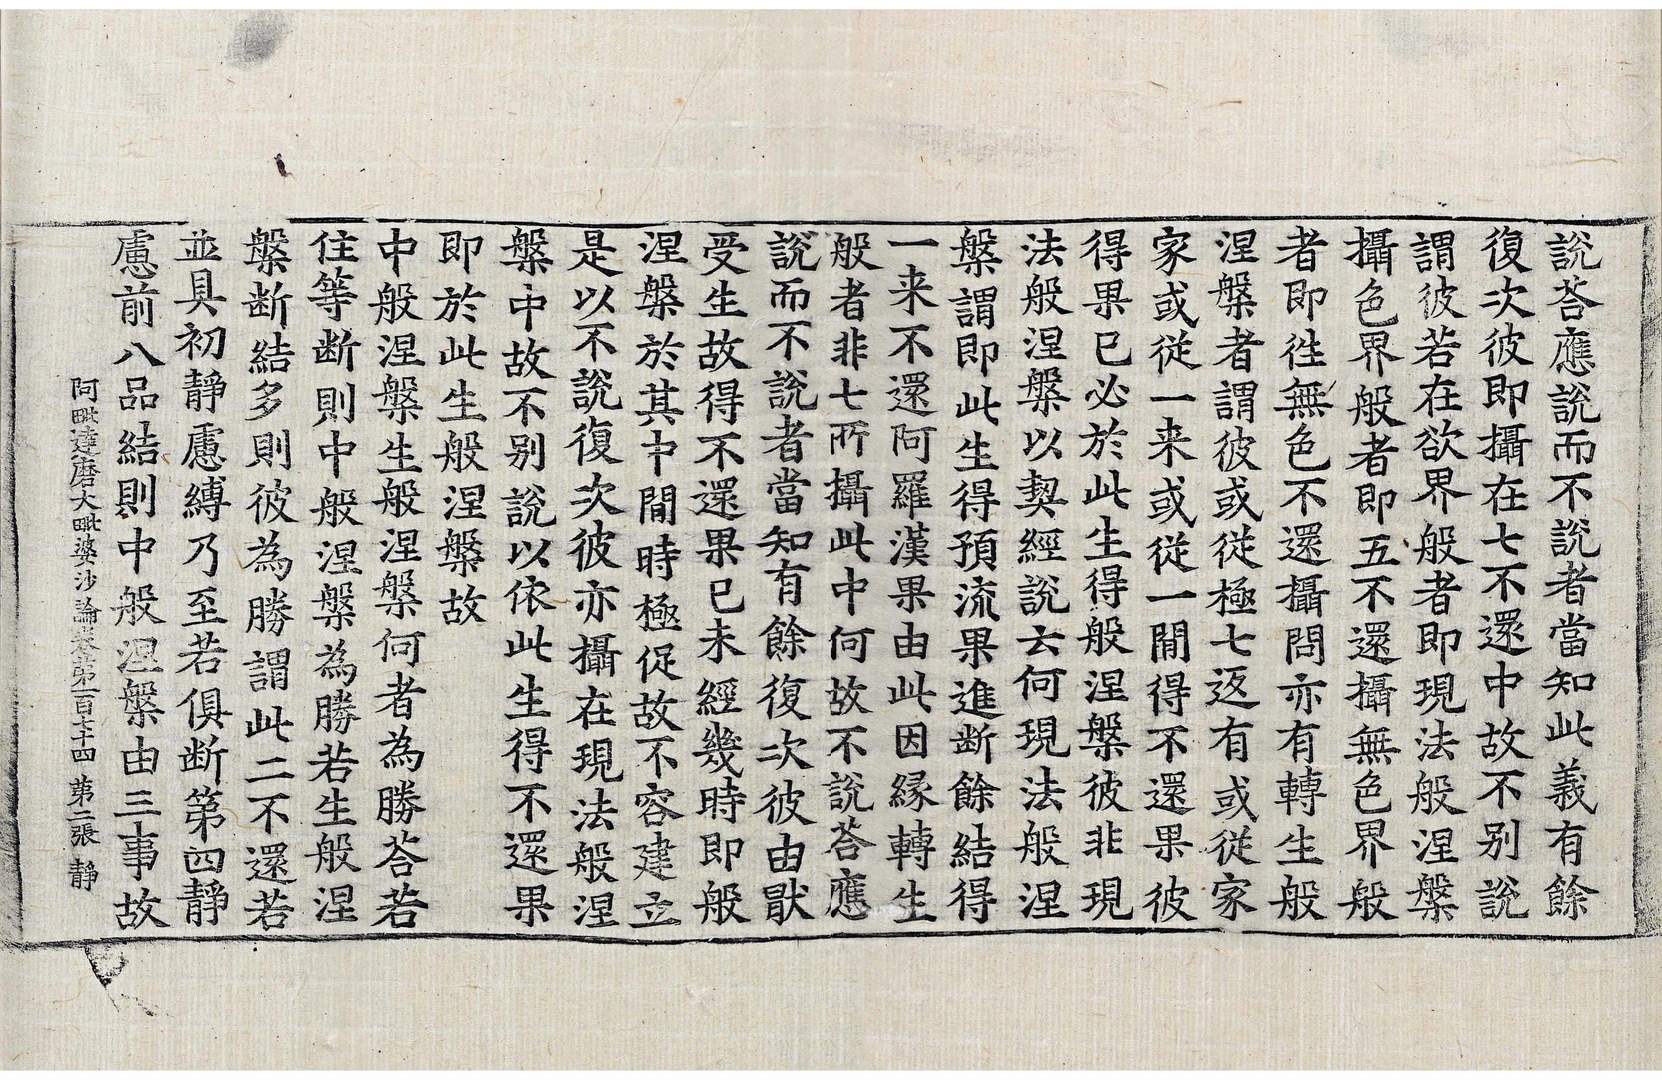 說荅應說而不說者當知此義有餘
復次彼即攝在七不還中故不別說
謂彼若在欲界般者即現法般涅槃
攝色界般者即五不還攝無色界般
者即徃無色不還攝問亦有轉生般
涅槃者謂彼或從極七返有或從家
家或從一来或從一閒得不還果彼
得果已必於此生得般涅槃彼非現
法般涅槃以契經說云何現法般涅
槃謂即此生得預流果進断餘結得
一来不還阿羅漢果由此因縁轉生
般者非七所攝此中何故不說荅應
說而不說者當知有餘復次彼由猒
受生故得不還果已未經幾時即般
涅槃於其中閒時極促故不容建立
是以不說復次彼亦攝在現法般涅
槃中故不別說以依此生得不還果
即於此生般涅槃故
中般涅槃生般涅槃何者為勝荅若
住等断則中般涅槃為勝若生般涅
槃断結多則彼為勝謂此二不還若
並具初靜慮縛乃至若俱断第四靜
慮前八品結則中般涅槃由三事故
阿毗達磨大毗婆沙論卷第一百七十四 第二張 靜